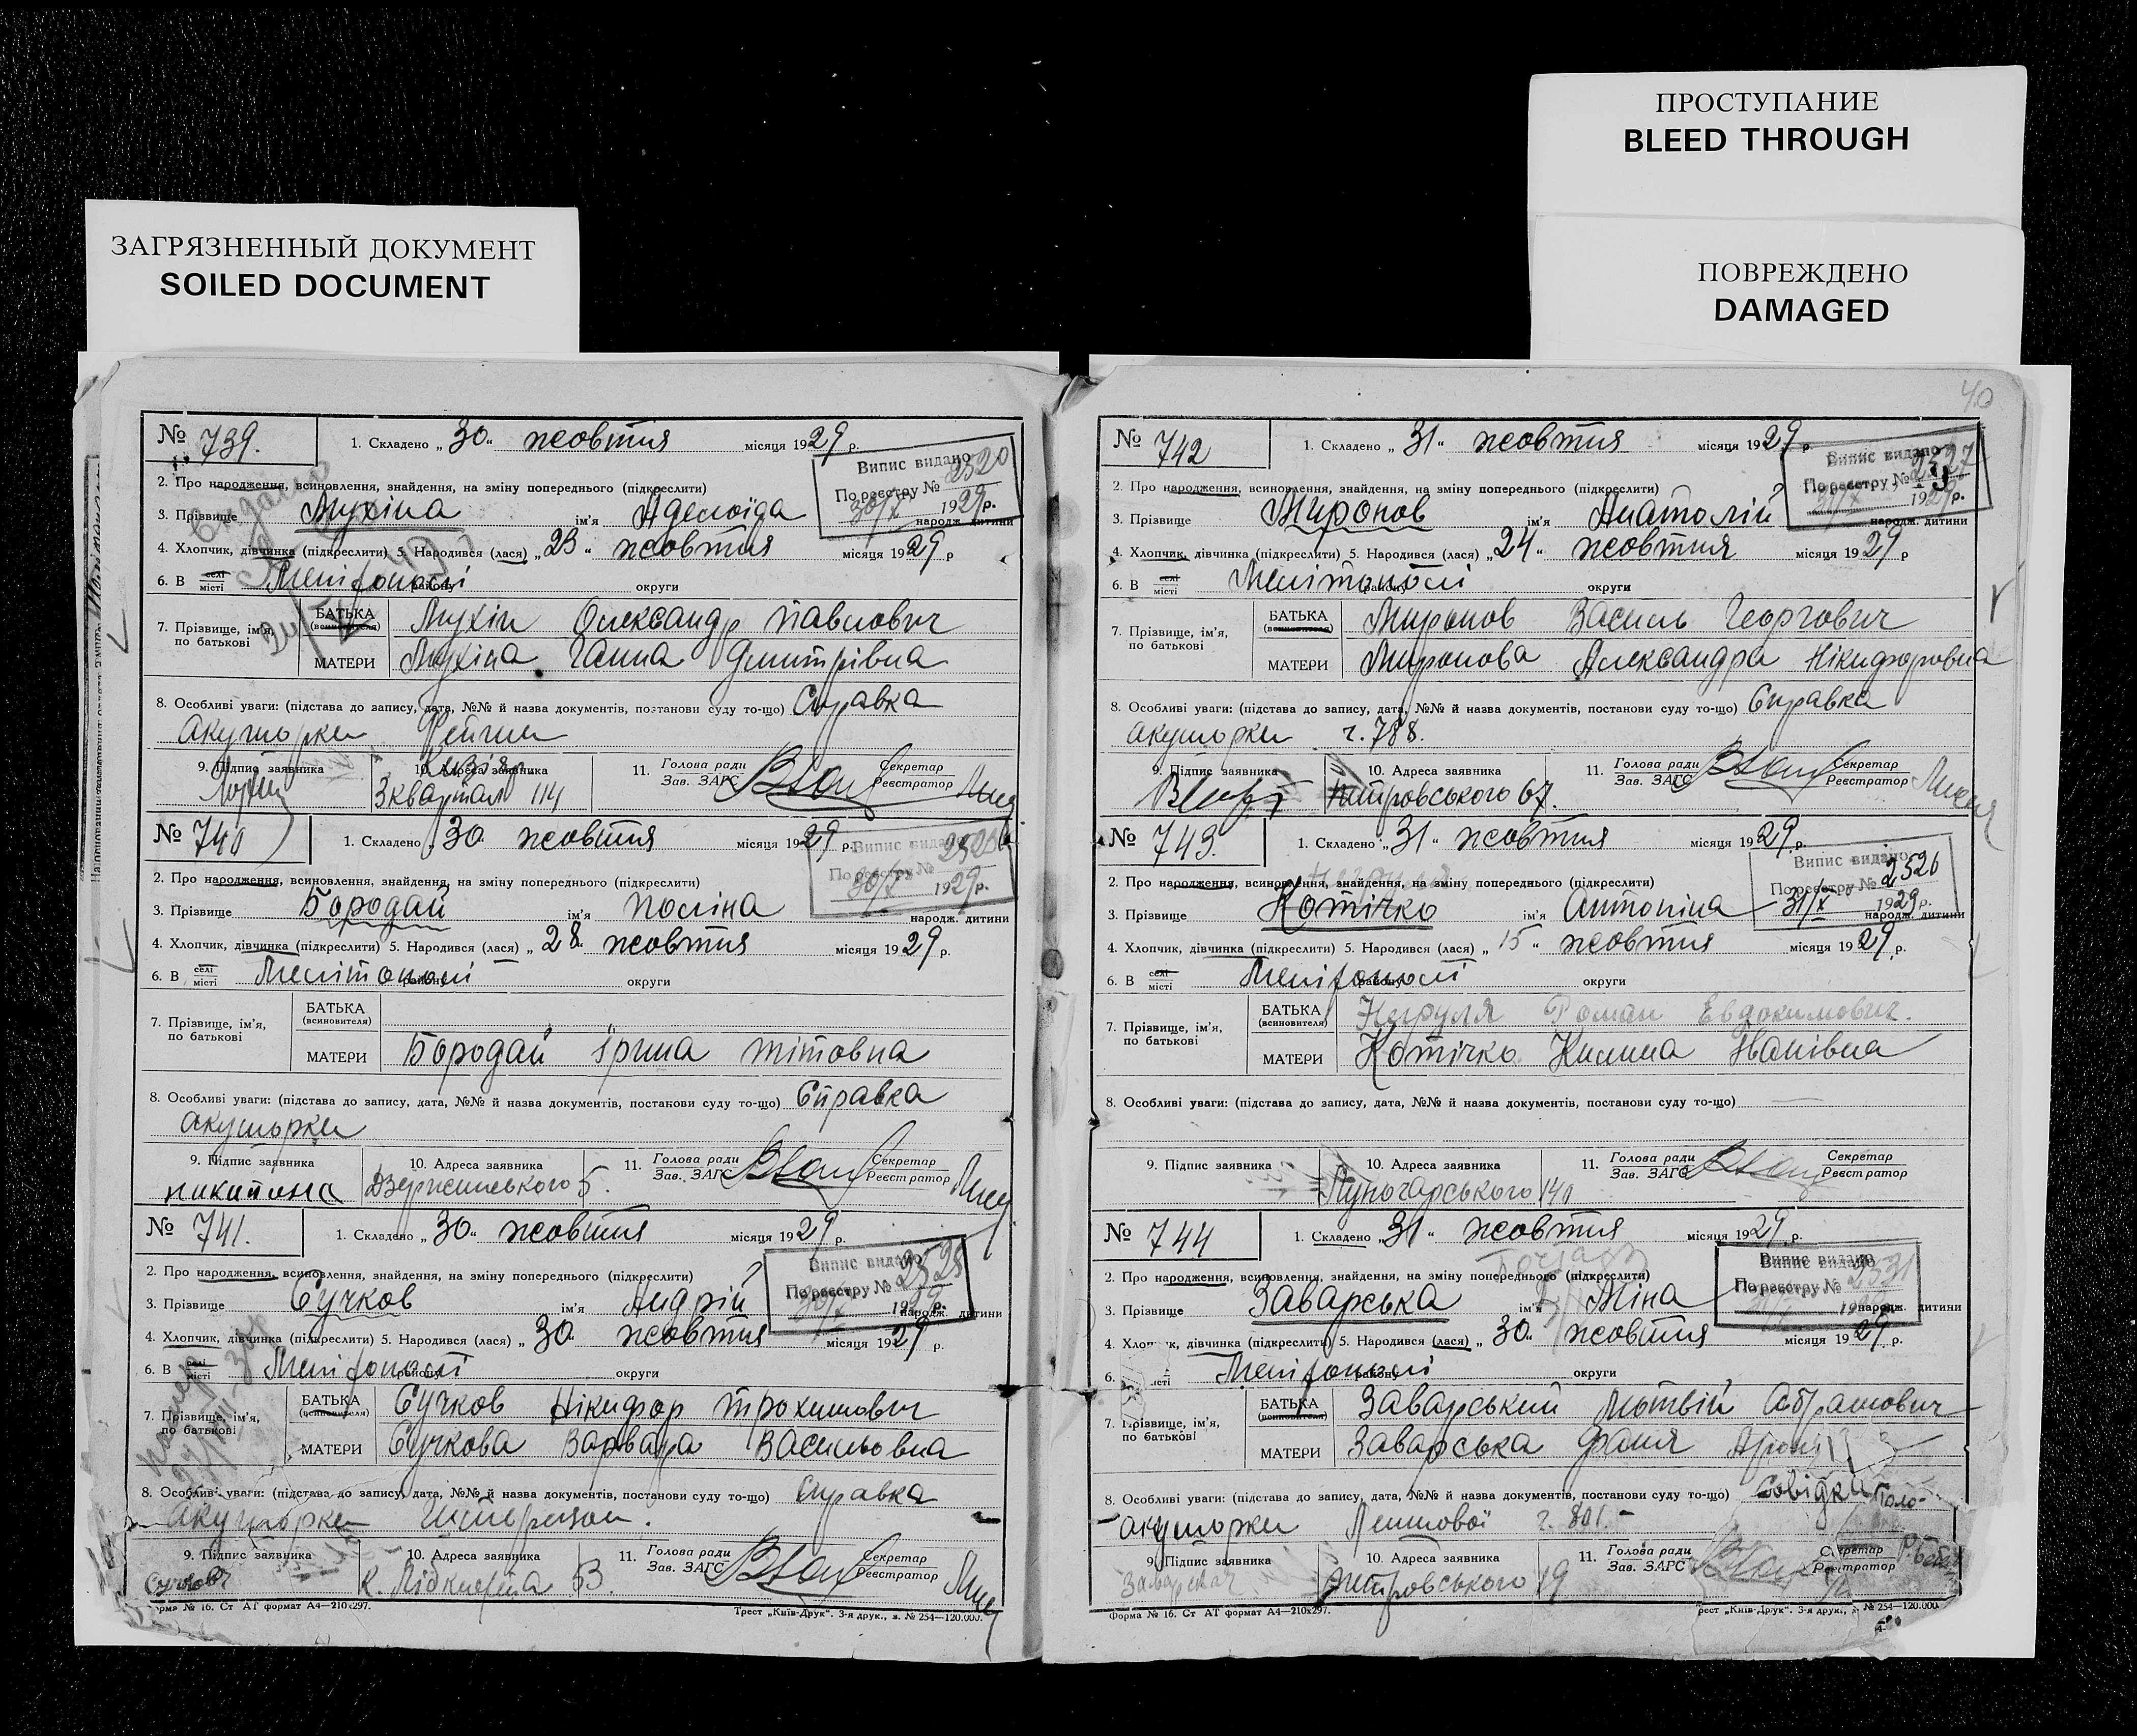 ПРОСТУПАНИЕ
BLEED THROUGH
ЗАГРЯЗНЕННЫЙ ДОКУМЕНТ
SOILED DOCUMENT
ПОВРЕЖДЕНО
DAMAGED
№ 739. 1. Складено „30" жовтня місяця 1929 р.
Випис видано
По реєстру № 2520
30/X 1929 р.
2. Про народження, всиновлення, знайдення, на зміну попереднього (підкреслити)
3. Прізвище Мухіна ім'я Аделоїда народж. дитини
4. Хлопчик, дівчинка (підкреслити) 5. Народився (лася) „23" жовтня місяця 1929 р
6. В селі місті Мелітополі району округи
7. Прізвище, ім'я, по батькові
БАТЬКА (всиновителя) Мухін Олександр Павлович
МАТЕРИ Мухіна Ганна Дмитрівна
8. Особливі уваги: (підстава до запису, дата, №№ й назва документів, постанови суду то-що) Справка
акушорки
9. Підпис заявника 10. Адреса заявника 11. Голова ради Зав. ЗАГС Секретар Реєстратор
Кизіяр 3 квартал 114
№ 740 1. Складено „30" жовтня місяця 1929 р.
Випис видано
По реєстру №
30/X 1929 р.
2. Про народження, всиновлення, знайдення, на зміну попереднього (підкреслити)
3. Прізвище Бородай ім'я Поліна народж. дитини
4. Хлопчик, дівчинка (підкреслити) 5. Народився (лася) „28" жовтня місяця 1929 р.
6. В селі місті Мелітополі району округи
7. Прізвище, ім'я, по батькові
БАТЬКА (всиновителя)
МАТЕРИ Бородай Ірина Тітовна
8. Особливі уваги: (підстава до запису, дата, №№ й назва документів, постанови суду то-що) Справка
акушорки
9. Підпис заявника 10. Адреса заявника 11. Голова ради Зав. ЗАГС Секретар Реєстратор
никитина Дзержинського 5.
№ 741. 1. Складено „30" жовтня місяця 1929 р.
Випис видано
По реєстру № 2525
30/X 1929 р.
2. Про народження, всиновлення, знайдення, на зміну попереднього (підкреслити)
3. Прізвище Сучков ім'я Андрій народж. дитини
4. Хлопчик, дівчинка (підкреслити) 5. Народився (лася) „30" жовтня місяця 1929 р.
6. В селі місті Мелітополі району округи
7. Прізвище, ім'я, по батькові
БАТЬКА (всиновителя) Сучков Нікифор Трохимович
МАТЕРИ Сучкова Варвара Васильовна
8. Особливі уваги: (підстава до запису, дата, №№ й назва документів, постанови суду то-що) Справка
акушорки
9. Підпис заявника 10. Адреса заявника 11. Голова ради Зав. ЗАГС Секретар Реєстратор
Сучков К. Лібкнехта 53.
Форма № 16. Ст АТ формат А4—210x297. Трест „Київ-Друк". 3-я друк., з. № 254—120.000.
40
№ 742 1. Складено „31" жовтня місяця 1929 р.
Випис видано
По реєстру № 2527
1929 р.
2. Про народження, всиновлення, знайдення, на зміну попереднього (підкреслити)
3. Прізвище Миронов ім'я Анатолій народж. дитини
4. Хлопчик, дівчинка (підкреслити) 5. Народився (лася) „24" жовтня місяця 1929 р
6. В селі місті Мелітополі району округи
7. Прізвище, ім'я, по батькові
БАТЬКА (всиновителя) Миронов Василь Георгович
МАТЕРИ Миронова Александра Нікифоровна
8. Особливі уваги: (підстава до запису, дата, №№ й назва документів, постанови суду то-що) Справка
акушорки ч. 788.
9. Підпис заявника 10. Адреса заявника 11. Голова ради Зав. ЗАГС Секретар Реєстратор
Петровського 67.
№ 743. 1. Складено „31" жовтня місяця 1929 р.
Випис видано
По реєстру № 2526
31/X 1929 р.
2. Про народження, всиновлення, знайдення, на зміну попереднього (підкреслити)
3. Прізвище Котічко ім'я Антоніна народж. дитини
4. Хлопчик, дівчинка (підкреслити) 5. Народився (лася) „15" жовтня місяця 1929 р.
6. В селі місті Мелітополі району округи
7. Прізвище, ім'я, по батькові
БАТЬКА (всиновителя) Негруля Роман Евдокимович.
МАТЕРИ Котічко Килина Іванівна
8. Особливі уваги: (підстава до запису, дата, №№ й назва документів, постанови суду то-що)
9. Підпис заявника 10. Адреса заявника 11. Голова ради Зав. ЗАГС Секретар Реєстратор
Луночарського 140
№ 744 1. Складено „31" жовтня місяця 1929 р.
Випис видано
По реєстру № 2531
2. Про народження, всиновлення, знайдення, на зміну попереднього (підкреслити)
3. Прізвище Заварська ім'я Міна народж. дитини
4. дівчинка (підкреслити) 5. Народився (лася) „30" жовтня місяця 1929 р.
6. Мелітополі району округи
7. Прізвище, ім'я, по батькові
БАТЬКА (всиновителя) Заварський Мотвій Абрамович
МАТЕРИ Заварська Фаня
8. Особливі уваги: (підстава до запису, дата, №№ й назва документів, постанови суду то-що) Довідка
акушорки ч. 801.
9. Підпис заявника 10. Адреса заявника 11. Голова ради Зав. ЗАГС Секретар Реєстратор
Заварская Петровського 19
Форма № 16. Ст АТ формат А4—210x297. Трест „Київ-Друк". 3-я друк., з. № 254—120.000.